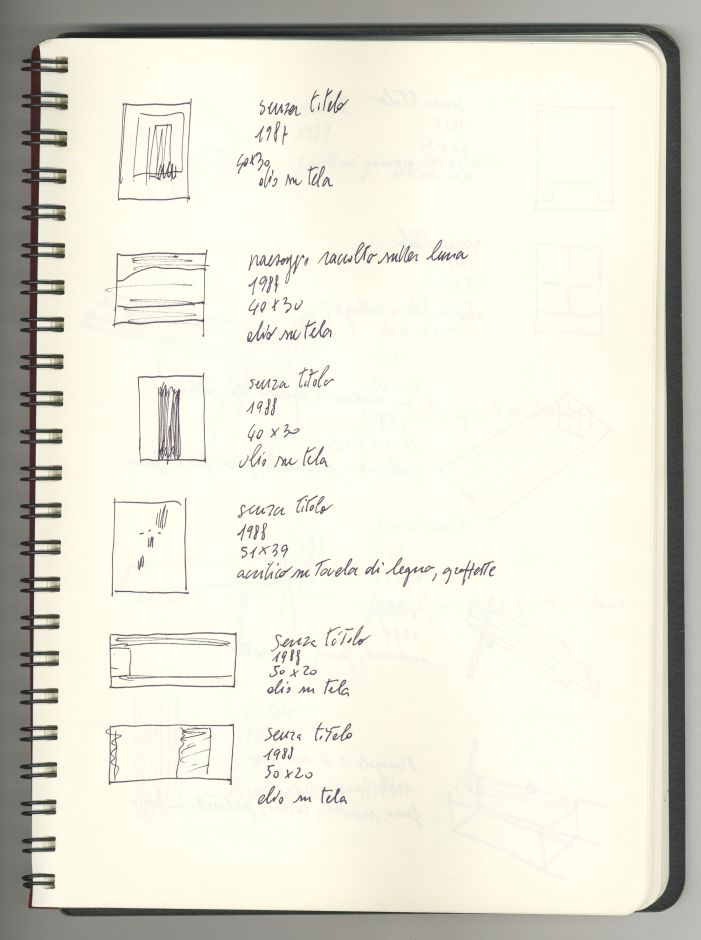 senza titolo
1987
40x30
olio su tela
paesaggio raccolto sulla luna
1988
40x30
olio su tela
senza titolo
1988
40x30
olio su tela
senza titolo
1988
51x39
acrilico su tavola di legno, graffette
senza titolo
1988
50x20
olio su tela
senza titolo
1988
50x20
olio su tela